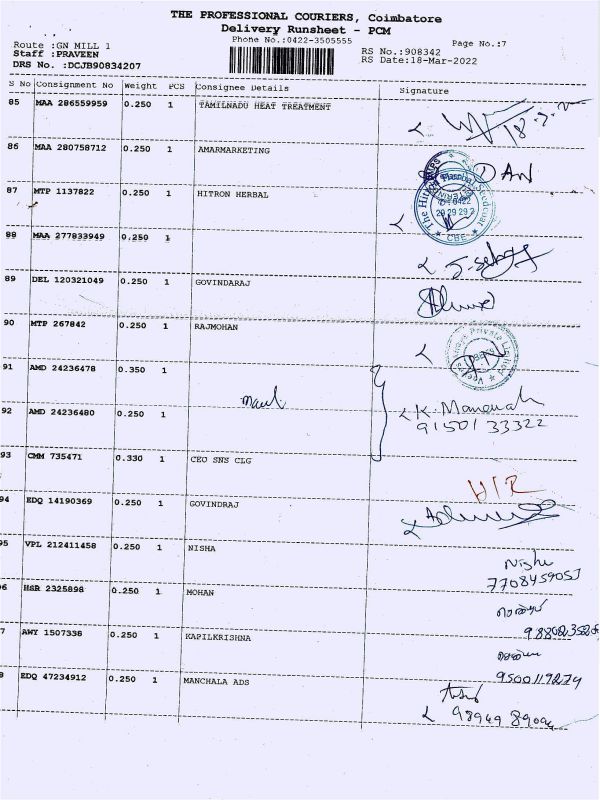 THE PROFESSIONAL COURIERS, Coimbatore
Delivery Runsheet - PCM
Phone No.:0422-3505555
Page No.:7
Route :GN MILL 1
Staff :PRAVEEN
DRS No. :DCJB90834207
RS No.:908342
RS Date:18-Mar-2022
S No Consignment No Weight PCS Consignee Details Signature
85 MAA 286559959 0.250 1 TAMILNADU HEAT TREATMENT
86 MAA 280758712 0.250 1 AMARMARKETING
87 MTP 1137822 0.250 1 HITRON HERBAL
88 MAA 277833949 0.250 1
89 DEL 120321049 0.250 1 GOVINDARAJ
90 MTP 267842 0.250 1 RAJMOHAN
91 AMD 24236478 0.350 1
92 AMD 24236480 0.250 1
91501 33322
93 CMM 735471 0.330 1 CEO SNS CLG
94 EDQ 14190369 0.250 1 GOVINDRAJ
95 VPL 212411458 0.250 1 NISHA
Nisha
7708459053
6 HSR 2325898 0.250 1 MOHAN
7 AWY 1507338 0.250 1 KAPILKRISHNA
8 EDQ 47234912 0.250 1 MANCHALA ADS